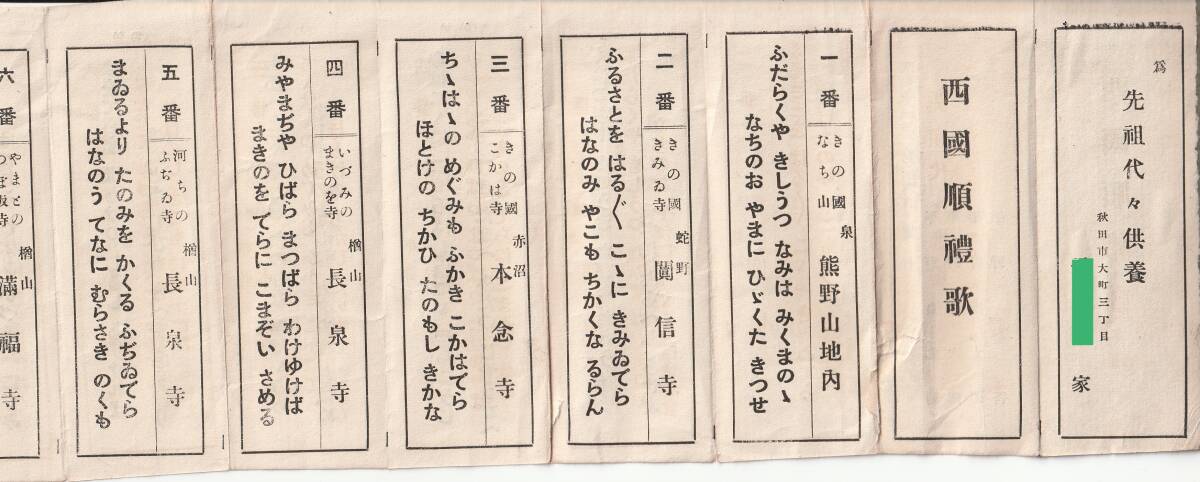 為
先祖代々供養
秋田市大町三丁目
家
西國順禮歌
一番
きの國
なち山
泉
熊野山地內
ふだらくや きしうつ なみは みくまのゝ
なちのお やまに ひゞくた きつせ
二番
きの國
きみゐ寺
蛇野
聞信寺
ふるさとを はる〴〵 こゝに きみゐでら
はなのみ やこも ちかくな るらん
三番
きの國
こかは寺
赤沼
本念寺
ちゝはゝの めぐみも ふかき こかはでら
ほとけの ちかひ たのもし きかな
四番
いづみの
まきのを寺
楢山
長泉寺
みやまぢや ひばら まつばら わけゆけば
まきのを てらに こまぞい さめる
五番
河ちの
ふぢゐ寺
楢山
長泉寺
まゐるより たのみを かくる ふぢゐでら
はなのう てなに むらさき のくも
六番
やまとの
つぼ坂寺
楢山
滿福寺